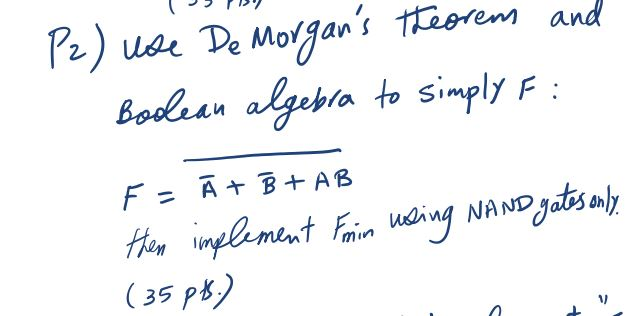 (35 pts.)
P2) use De Morgan's theorem and
Boolean algebra to simply F :
F = \overline{A̅ + B̅ + AB}
then implement Fmin using NAND gates only.
(35 pts.)